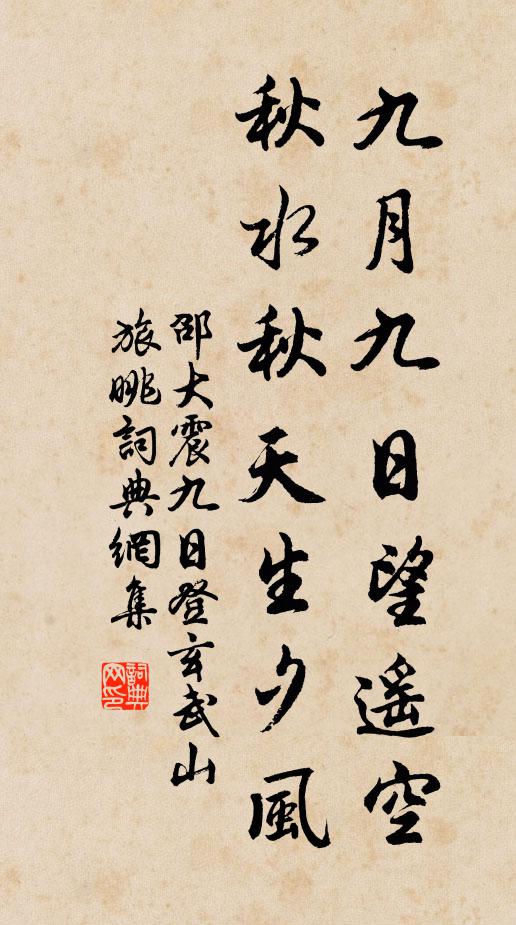 九月九日望遥空
秋水秋天生夕風
邵大震九日登玄武山
旅眺詞典網集
詞典网印